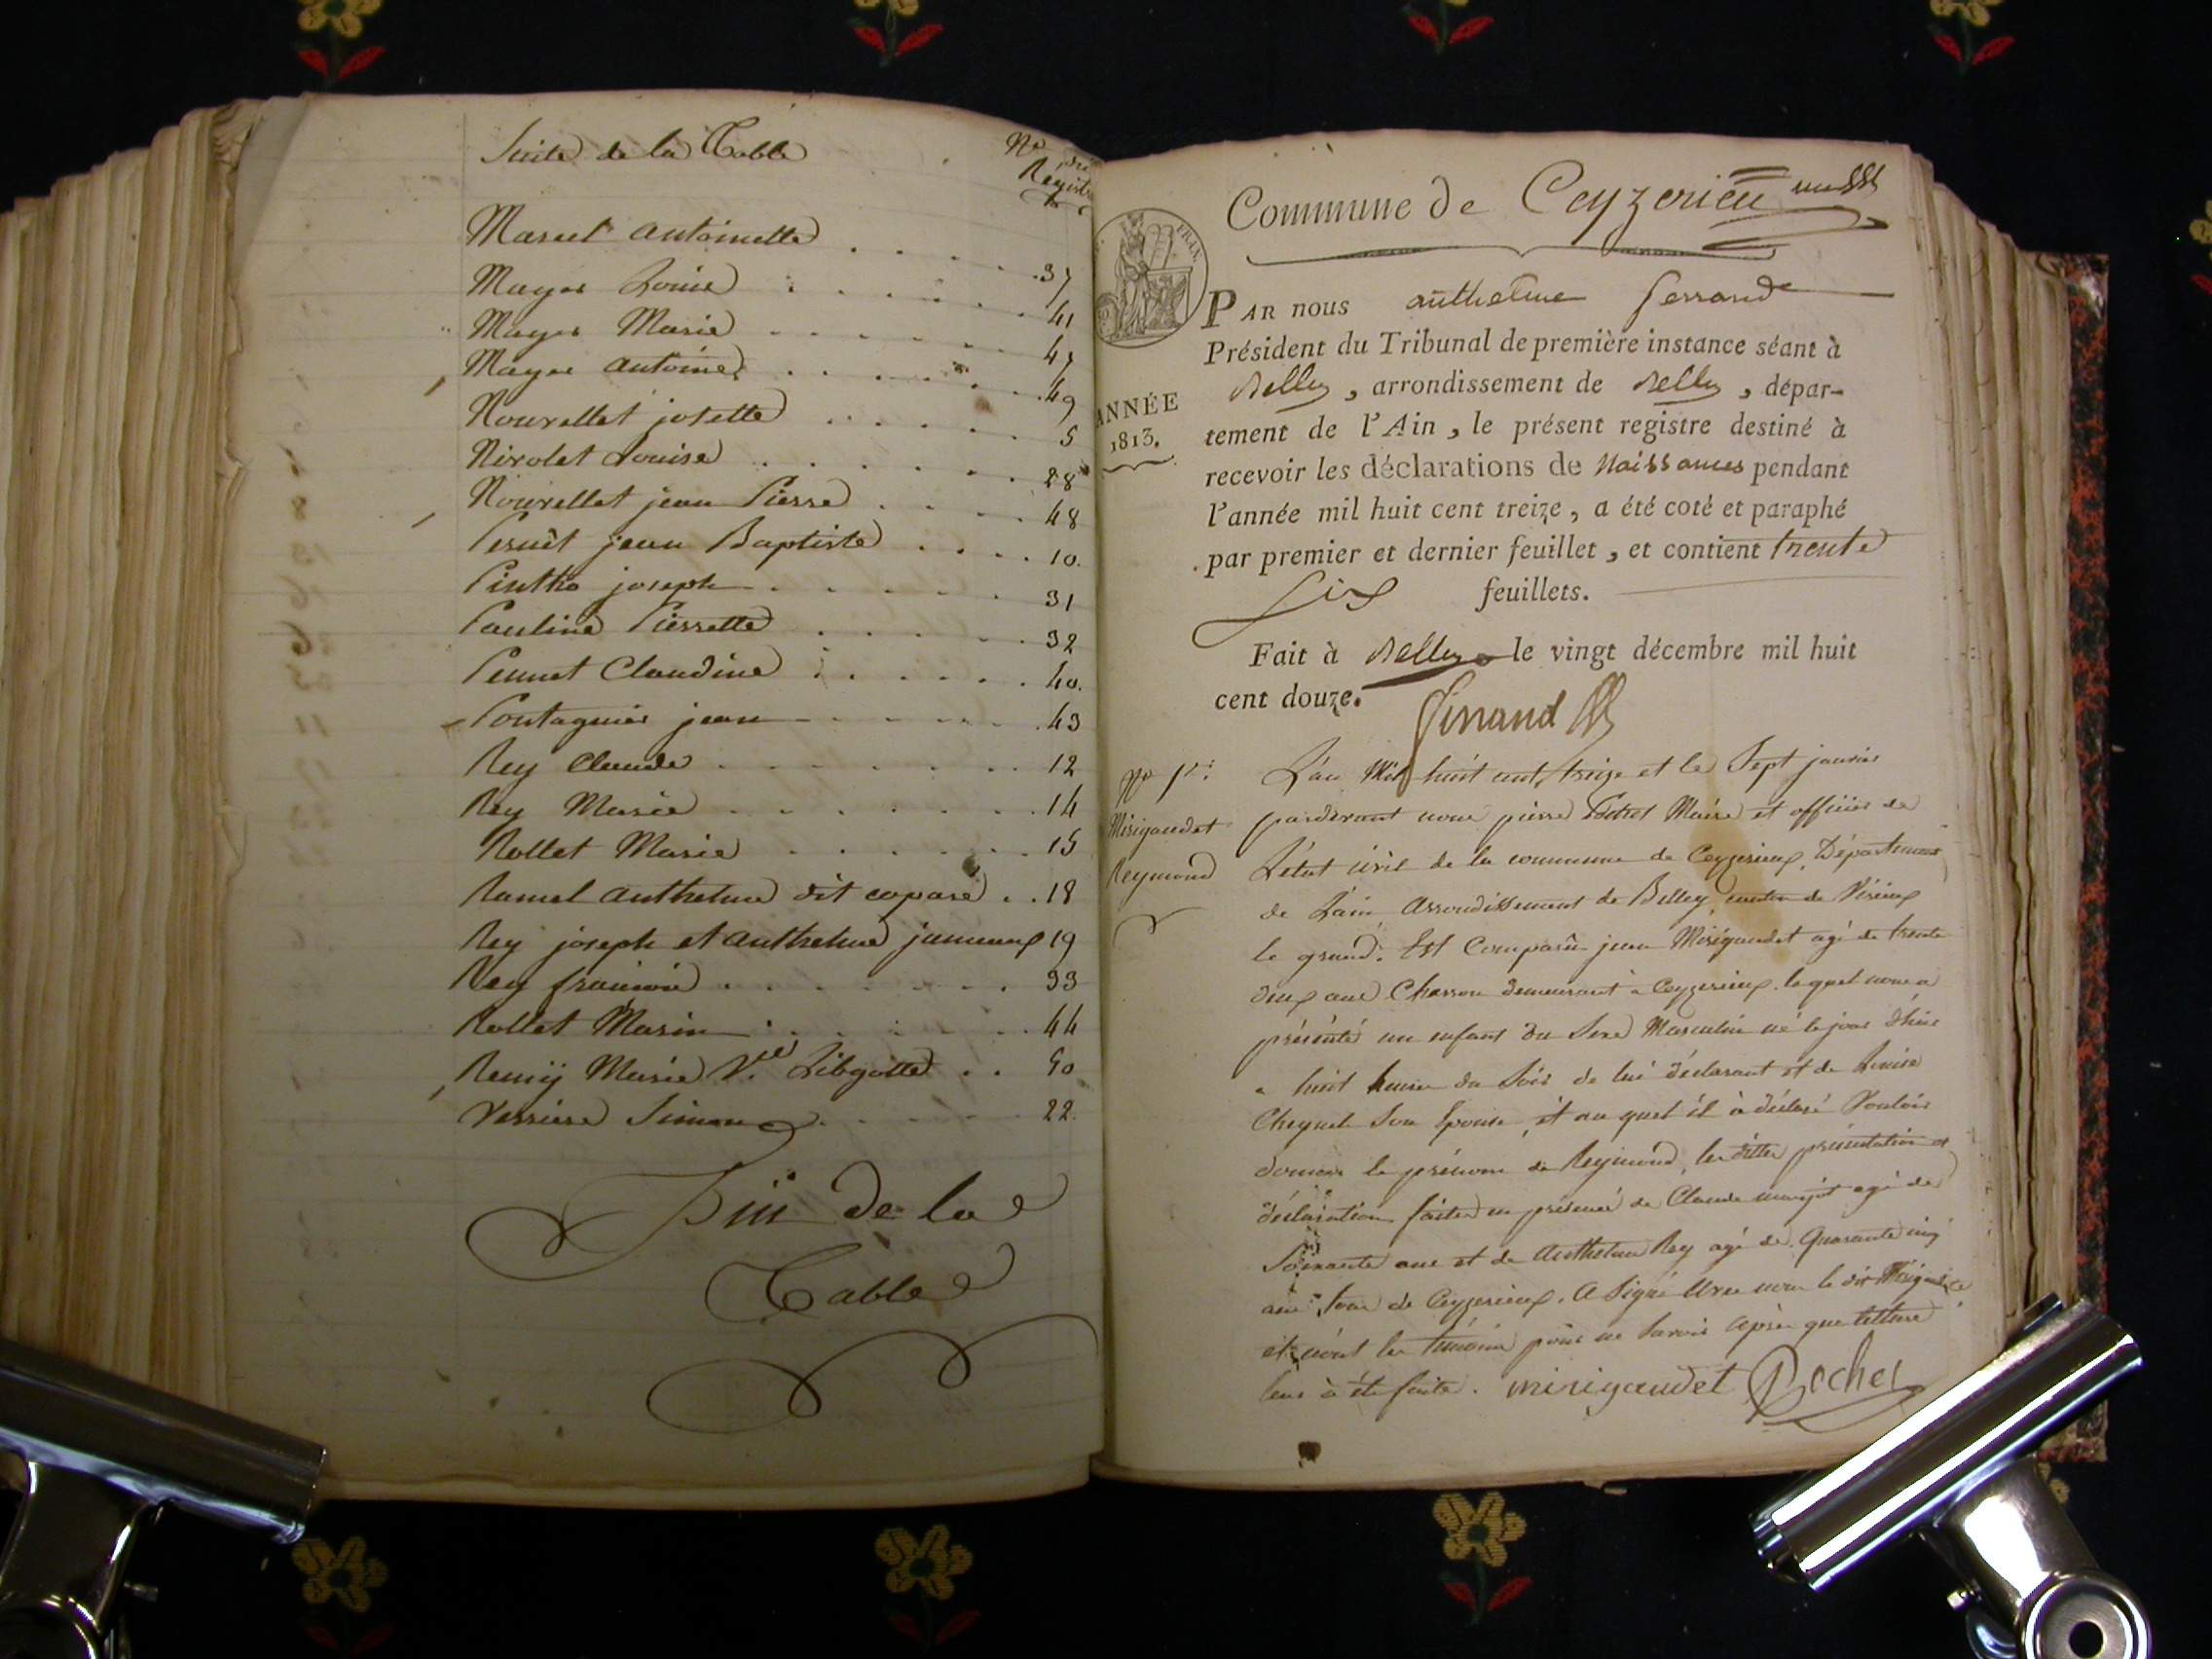 Suite de la Table
No du
Registre
Marcel antoinette . . . . . 37
Mayer Louise . . . . . 41
Mayer Marie . . . . . 47
Mayer antoine . . . . . 49
Nouvellet josette . . . . . 5
Nivolet Louise . . . . . 28
Nouvellet jean Pierre . . . . 48
Pernêt jean Baptiste . . . . 10.
joseph . . . . . 31
Pauline Pierrette . . . . . 32
Claudine . . . . . 40.
jean . . . . . 43
Rey Claude . . . . . 12
Rey Marie . . . . . 14
Rollet Marie . . . . . 15
Ramel Anthelme dit . . 18
Rey joseph et anthelme jumeaux 19
Rey . . . . . 33
Rollet Marin . . . . . 44
Remÿ Marie Ve . . 50
Verriere Simon . . . . . 22
Fin de la
Table
Commune de Ceyzerieu
FRAN.
PAR nous anthelme ferrand
Président du Tribunal de première instance séant à
Belley, arrondissement de Belley, dépar-
ANNÉE
1813.
tement de l'Ain, le présent registre destiné à
recevoir les déclarations de Naissances pendant
l'année mil huit cent treize, a été coté et paraphé
par premier et dernier feuillet, et contient trente
six feuillets.
Fait à Belley le vingt décembre mil huit
cent douze.
ferrand
No 1er
Mirigaudet
Reymond
L'an Mil huit cent treize et le Sept janvier
pardevant nous pierre Maire et officier de
L'état civil de la commune de Ceyzerieux, Département
de L'ain Arrondissement de Belley, canton de Virieux
le grand. Est Comparû jean Mirigaudet agé de trente
deux ans Charron demeurant à Ceyzerieux. lequel nous a
présenté un enfant du Sexe Masculin né le jour d'hier
a huit heures du Soir de lui déclarant et de Louise
Son Epouse, et au quel il à déclaré Vouloir
donner le prénom de Reymond, les dittes présentation et
déclaration faites en présence de Claude agé de
Soixante ans et de Anthelme Rey agé de Quarante cinq
ans, tous de Ceyzerieux. A Signé Avec nous le dit Mirigaudet
et non les témoins pour ne Savoir après que lecture
leur à été faite. mirigaudet Pochet